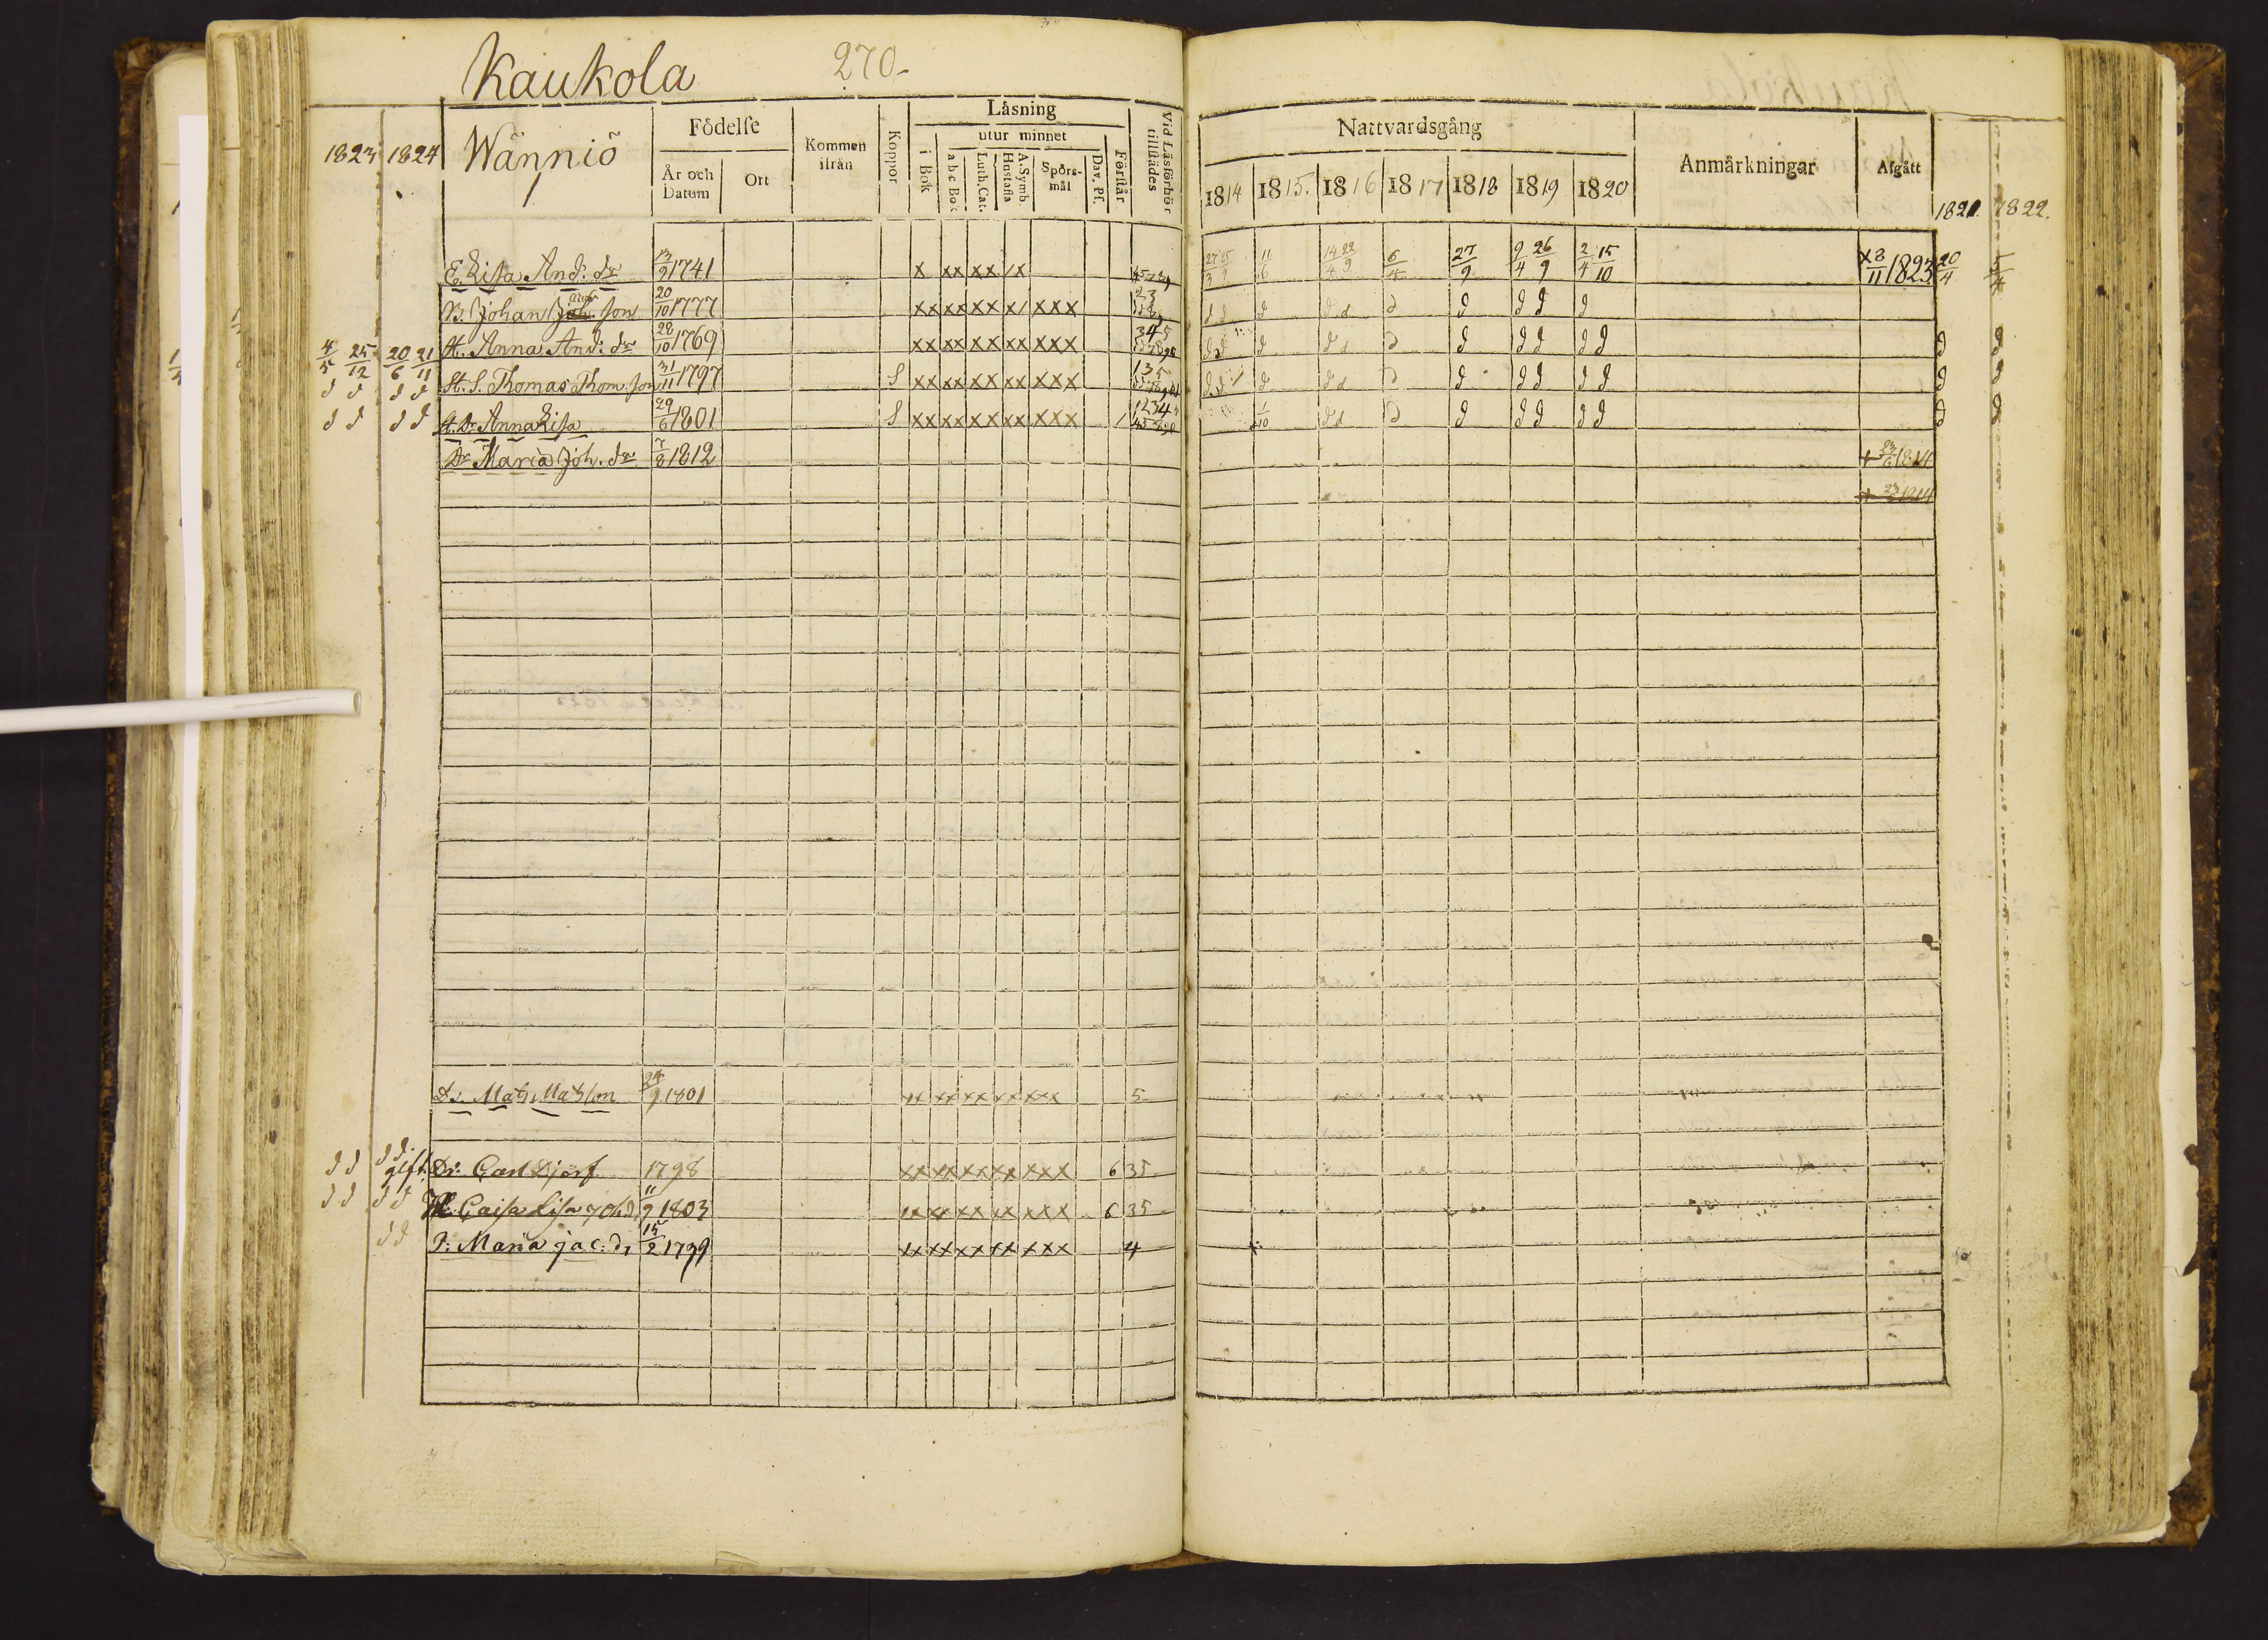 Kaukola 270.
1823 1824 Wänniö 1 Födelse År och Datum Ort Kommen ifrån Koppor Läsning i Bok utur minnet a b c Bok Luth. Cat. A. Symb. Hustafla Spörs-mål Dav. Ps. Förstår Vid Läsförhör tillstädes Nattvardsgång 1814 1815. 1816 1817 1818 1819 1820 Anmärkningar Afgått 1821. 1822.
E. Lisa And: dr 13/9 1741 x xx xx /x 11/6 14/4 22/9 6/4 27/9 9/4 26/9 2/4 15/10 x 8/11 1823 20/4 5/4
B. Johan Joh. son 20/10 1777 xx xx xx x/ xxx 23 d d d d d d d d d d
4/5 25/12 20/6 21/11 H. Anna And: dr 28/10 1769 xx xx xx xx xxx 345 d d d d d d d d d d d d d
d d d d St. S. Thomas Thom. son 31/11 1797 S xx xx xx xx xxx 135 d d d d d d d d d d d d d
d d d d St. Dr. Anna Lisa 29/6 1801 S xx xx xx xx xxx / 1234 1/10 d d d d d d d d d d
Dr. Maria Joh. dr 7/8 1812 + 1814
+ 1814
Dr. Mats Matsson 24/9 1801 xx xx xx xx xxx 5
d d d d gift. Dr: Carl Djerf 1798 xx xx xx xx xxx 6 35
d d d d H. Caisa Lisa Joh.d. 11/9 1803 xx xx xx xx xxx 6 35
d d P: Maria Jac: dr 15/2 1799 xx xx xx xx xxx 4